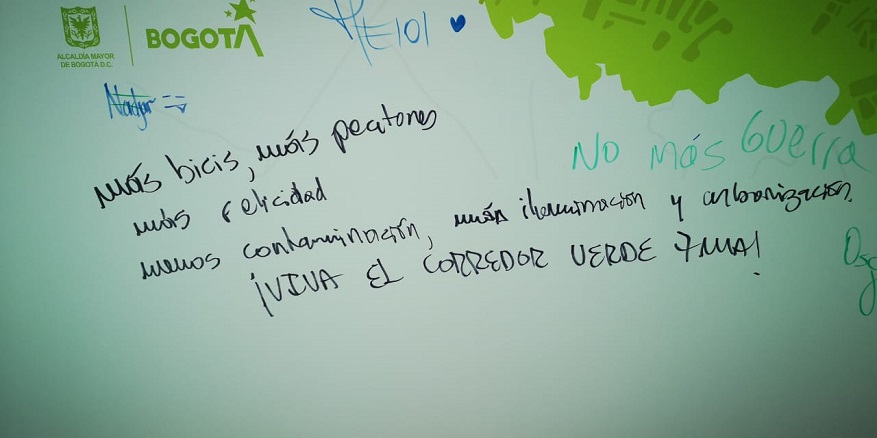 ALCALDÍA MAYOR
DE BOGOTÁ D.C.
BOGOTÁ
más bicis, más peatones
No más Guerra
más felicidad
menos contaminación, más iluminación y arborización.
¡VIVA EL CORREDOR VERDE 7MA!